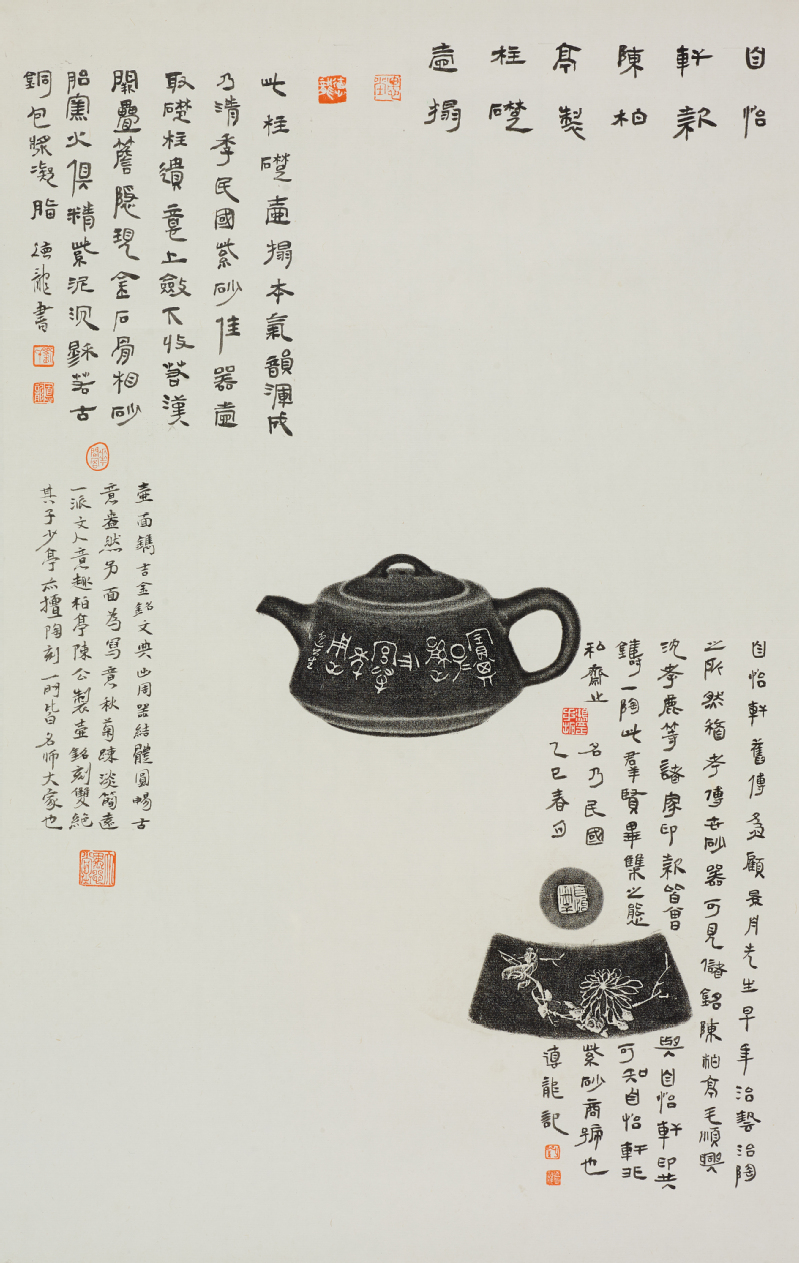 自怡
軒款
陳柏
亭製
柱礎
壺搨
此柱礎壺搨本氣韻渾成
乃清季民國紫砂佳器壺
取礎柱遺意上斂下收若漢
闕疊簷隱現金石骨相砂
胎窯火俱精紫泥沉若古
銅包漿凝脂 德龍書
壺面鐫吉金銘文與西周器結體圓暢古
意盎然另面為寫意秋菊疎淡簡遠
一派文人意趣柏亭陳公製壺銘刻雙絕
其子少亭亦擅陶刻一門皆名師大家也
自怡軒舊傳為顧景舟先生早年治藝治陶
之所然稽考傳世砂器可見儲銘陳柏亭毛順興
沈孝鹿等諸家印款皆曾與自怡軒印共
鑄一陶此群賢畢集之態可知自怡軒非
私齋之名乃民國紫砂商號也
乙巳春日德龍記